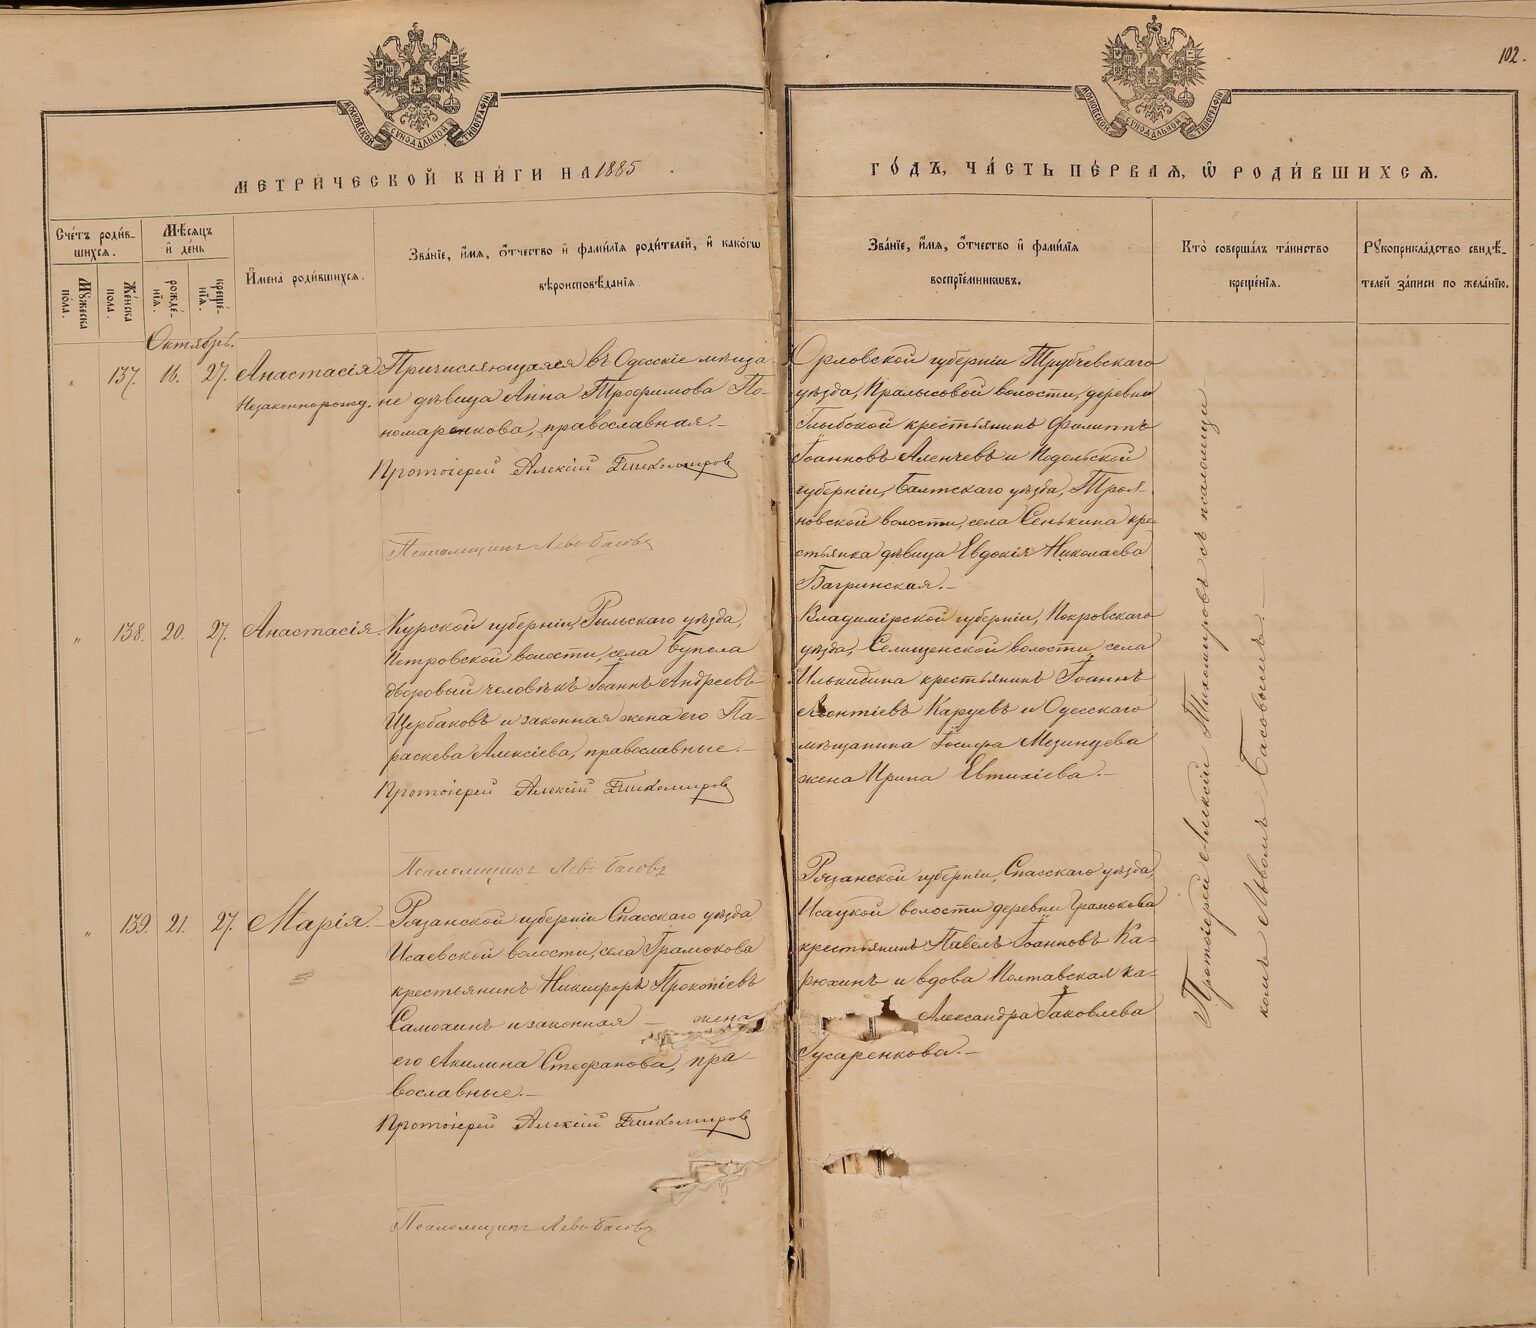 102.
МОСКОВСКОЙ СѴНОДАЛЬНОЙ ТИПОГРАФІИ
МОСКОВСКОЙ СѴНОДАЛЬНОЙ ТИПОГРАФІИ
МЕТРИ́ЧЕСКОЙ КНИ́ГИ НА 1885
ГО́ДЪ, ЧА́СТЬ ПЕ́РВАѦ, Ѿ РОДИ́ВШИХСѦ.
Сче́тъ роди́в-
шихсѧ.
Мꙋ́жеска по́ла.
Же́нска пола.
Мѣ́сѧцъ
и҆ де́нь
рожде́-
нїѧ.
креще́-
нїѧ.
И҆мена̀ роди́вшихсѧ.
Зва́нїе, и҆́мѧ, ѻ҆́тчество и҆ фами́лїѧ роди́телей, и҆ како́гѡ
вѣроисповѣ́данїѧ
Зва́нїе, и҆́мѧ, ѻ҆́тчество и҆ фами́лїѧ
воспрїе́мникѡвъ.
Кто̀ соверша́лъ та́инство
креще́нїѧ.
Рꙋкоприкла́дство свидѣ́-
телей за́писи по жела́нїю.
Октябрь.
„ 137. 16. 27. Анастасія
Незаконнорожд.
Причисляющаяся въ Одесскіе мѣща-
не дѣвица Анна Трофимова По-
номаренкова, православная.
Протоіерей Алексій Тихомировъ
Псаломщикъ Левъ Басовъ
Орловской губерніи Трубчевскаго
уѣзда, волости, деревни
Глыбокой крестьянинъ Филиппъ
Іоанновъ Аленчевъ и Подольской
губерніи, Балтскаго уѣзда, Троя-
новской волости, села Сенькина кре-
стьянка дѣвица Евдокія Николаева
Багринская.
„ 138. 20. 27. Анастасія
Курской губерніи, Рыльскаго уѣзда,
Петровской волости, села Бупела
дворовый человѣкъ Іоаннъ Андреевъ
Щербаковъ и законная жена его Па-
раскева Алексіева, православные.
Протоіерей Алексій Тихомировъ
Псаломщикъ Левъ Басовъ
Владимірской губерніи, Покровскаго
уѣзда, Селищенской волости, села
Илькидина крестьянинъ Іоаннъ
Леонтіевъ Каруевъ и Одесскаго
мѣщанина Іосифа Мезинцева
жена Ирина Евтихіева.
„ 139. 21. 27. Марія.
Рязанской губерніи Спасскаго уѣзда
Исаевской волости, села Грамокова
крестьянинъ Никифоръ Прокопіевъ
Самохинъ и законная жена
его Акилина Стефанова, пра-
вославные.
Протоіерей Алексій Тихомировъ
Псаломщикъ Левъ Басовъ
Рязанской губерніи, Спасскаго уѣзда,
Исацкой волости деревни Грамокова
крестьянинъ Павелъ Іоанновъ Ка-
рюхинъ и вдова Полтавская ка-
Александра Іаковлева
Гусаренкова.
Протоіерей Алексій Тихомировъ съ псаломщи-
комъ Львомъ Басовымъ.